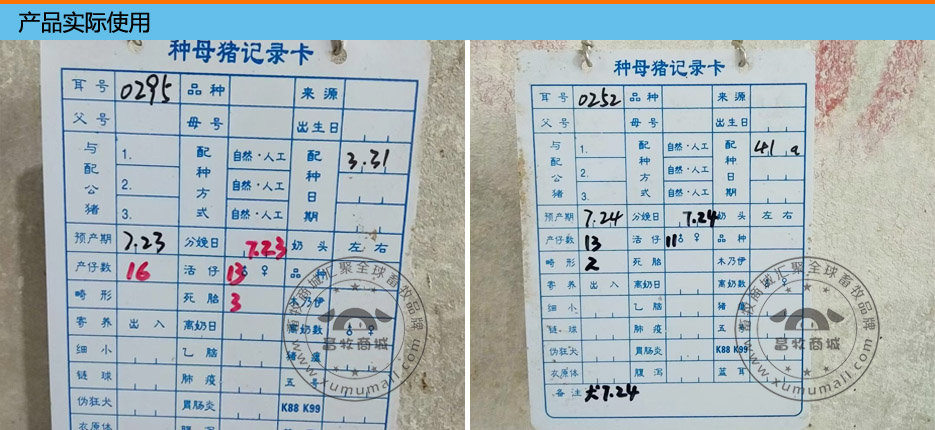 产品实际使用
种母猪记录卡
耳号 0295 品种 来源
父号 母号 出生日
与配公猪 1. 2. 3. 配种方式 自然·人工 自然·人工 自然·人工 配种日期 3.31
预产期 7.23 分娩日 7.23 奶头 左 右
产仔数 16 活仔 13 ♂ ♀ 品种
畸形 死胎 3 木乃伊
寄养 出 入 离奶日 离奶数 ♂ ♀
细小 乙脑 猪瘟
链球 肺疫 五号
伪狂犬 胃肠炎 K88 K99
衣原体 腹泻
种母猪记录卡
耳号 0252 品种 来源
父号 母号 出生日
与配公猪 1. 2. 3. 配种方式 自然·人工 自然·人工 自然·人工 配种日期
预产期 7.24 分娩日 7.24 奶头 左 右
产仔数 13 活仔 11 ♂ ♀ 品种
畸形 2 死胎 木乃伊
寄养 出 入 离奶日 离奶数
细小 乙脑 猪
链球 肺疫 五
伪狂犬 胃肠炎 K88 K99
衣原体 腹泻 蓝耳
备注 7.24
畜牧商城汇聚全球畜牧品牌
畜牧商城
www.xumumall.com
畜牧商城汇聚全球畜牧品牌
畜牧商城
www.xumumall.com